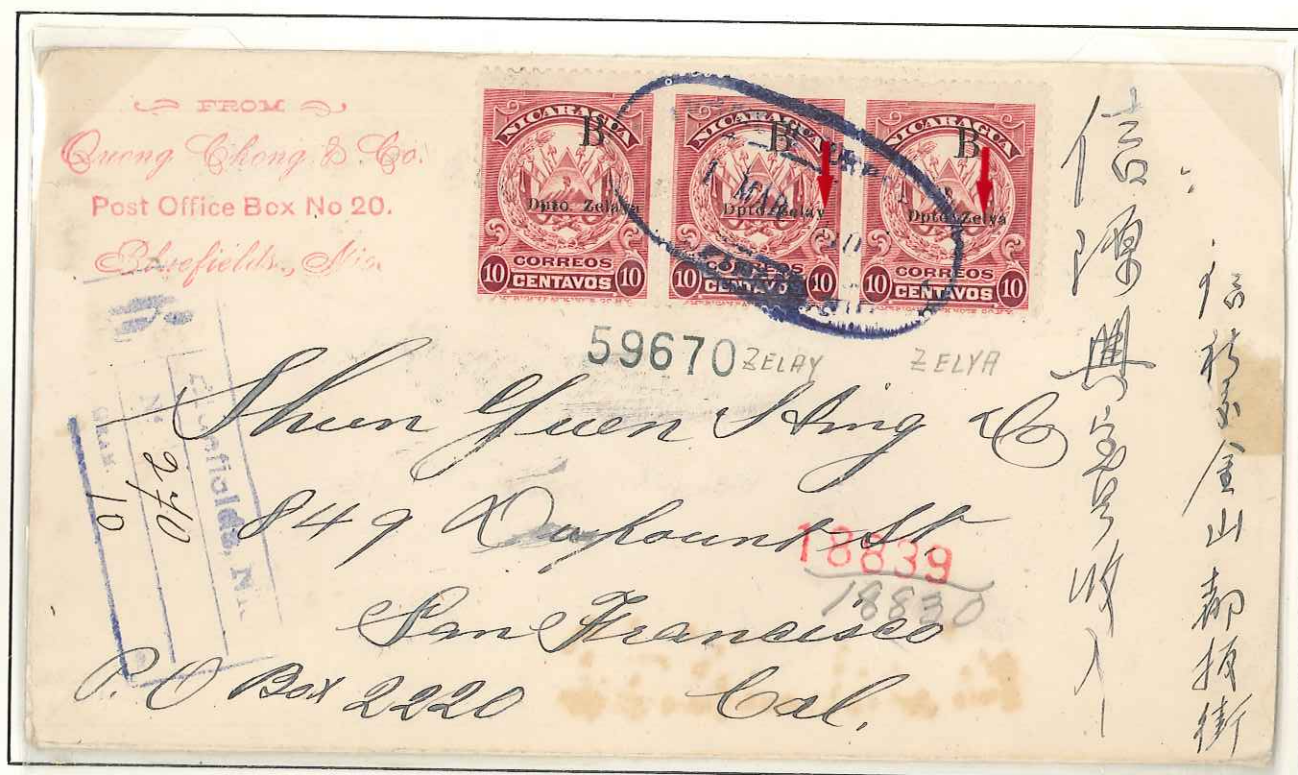 FROM
Quong Chong & Co.
Post Office Box No 20.
Bluefields, Nic.
NICARAGUA
B
Dpto. Zelaya
CORREOS
10 CENTAVOS 10
NICARAGUA
B
Dpto. Zelay
CORREOS
10 CENTAVOS 10
NICARAGUA
B
Dpto. Zelya
CORREOS
10 CENTAVOS 10
1 MAR
59670
ZELAY
ZELYA
Shun Yuen Hing Co
849 Dupount St.
San Francisco
P.O Box 2220 Cal.
18839
18830
Bluefields, Nic.
N. 270
GRAM 10
金山都板街
信 興寶号收入